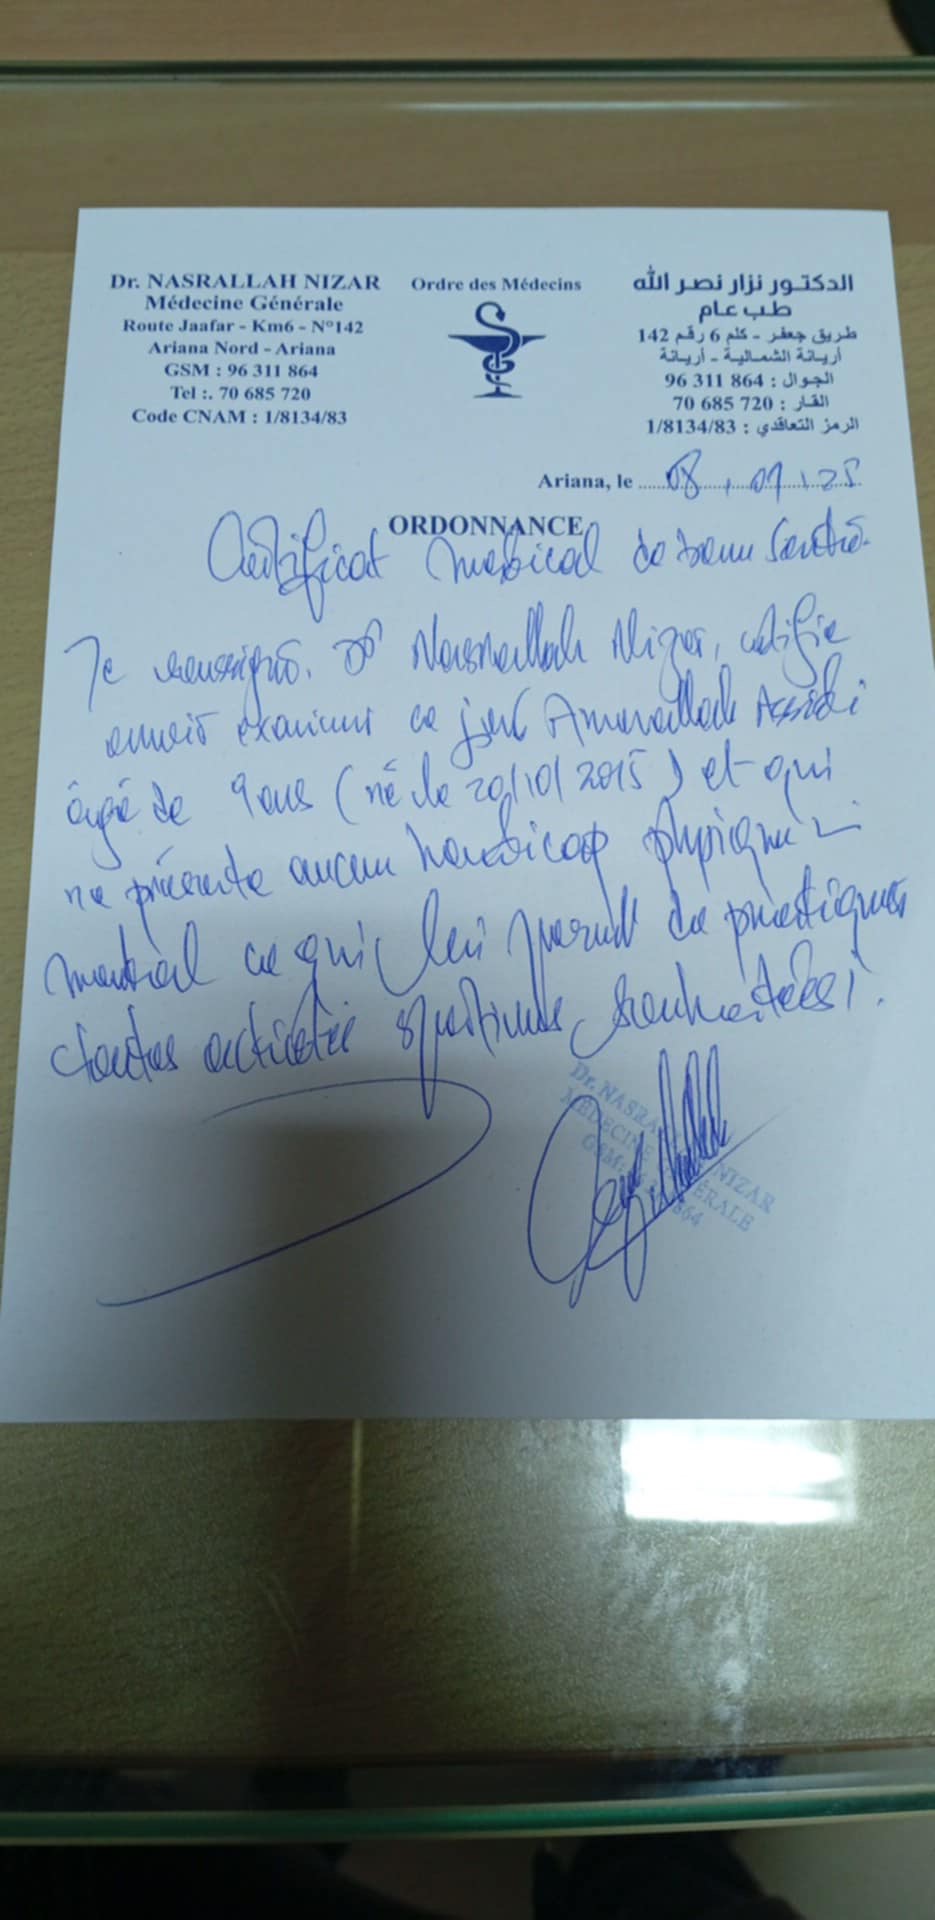 Dr. NASRALLAH NIZAR
Médecine Générale
Route Jaafar - Km6 - N°142
Ariana Nord - Ariana
GSM : 96 311 864
Tel :. 70 685 720
Code CNAM : 1/8134/83
Ordre des Médecins
الدكتور نزار نصر الله
طب عام
طريق جعفر - كلم 6 رقم 142
أريانة الشمالية - أريانة
الجوال : 96 311 864
القار : 70 685 720
الرمز التعاقدي : 1/8134/83
Ariana, le 08, 01, 25
ORDONNANCE
Certificat medical de bonne Santé
Je soussigné, Dr Nasrallah Nizar, certifie
avoir examiné ce jour Amenallah Assidi
âgé de 9 ans (né le 20/10/2015) et qui
ne présente aucun handicap physique ni
mental ce qui lui permet de pratiquer
toutes activités sportives souhaitées.
Dr. NASRA NIZAR
MÉDECINE GÉNÉRALE
GSM: 864